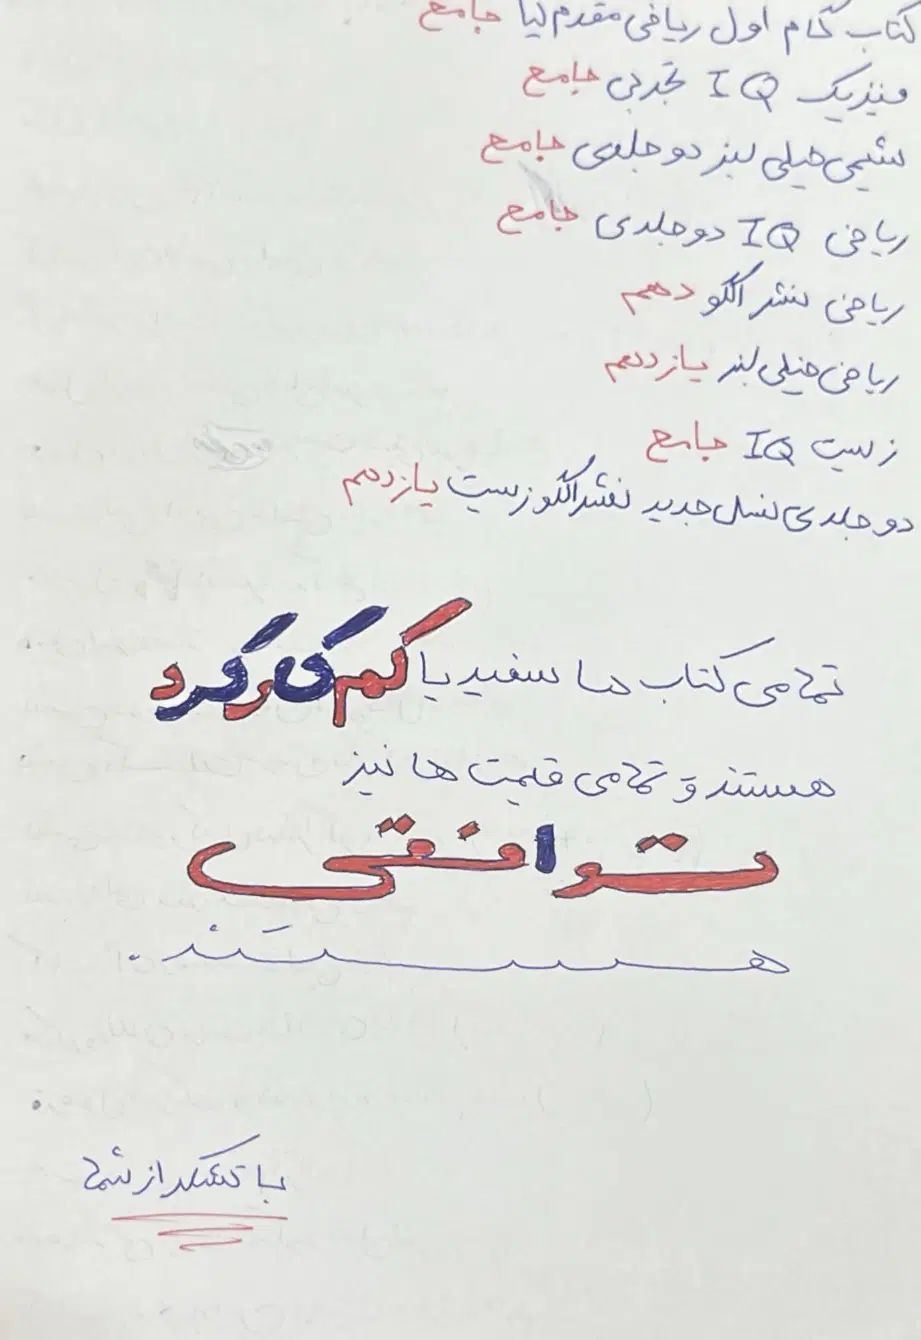 کتاب گام اول ریاضی مقدم نیا جامع
فیزیک IQ تجربی جامع
شیمی خیلی سبز دو جلدی جامع
ریاضی IQ دو جلدی جامع
ریاضی نشر الگو دهم
ریاضی خیلی سبز یازدهم
زیست IQ جامع
دو جلدی نسل جدید نشر الگو زیست یازدهم
تمامی کتاب ها سفید یا کم کارکرد
هستند و تمامی قیمت ها نیز
توافقی
هستند.
با تشکر از شما